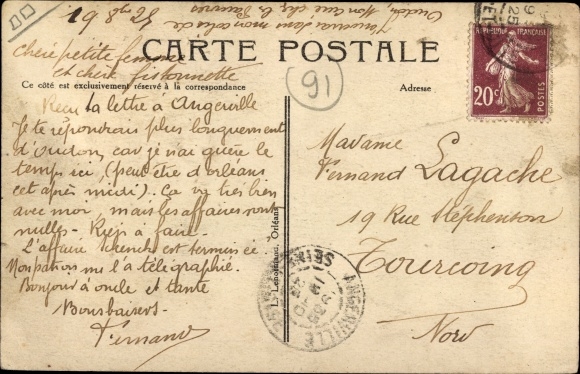 CARTE POSTALE
Ce côté est exclusivement réservé à la correspondance
Adresse
91
RÉPUBLIQUE FRANÇAISE
20c
POSTES
19 8bre 25
chère petite femme
et chère fistounette
Reçu ta lettre à Angerville
Je te répondrais plus longuement
d'Oudon, car je n'ai guère le
temps ici, (peut être d'orléans
cet après midi). Ça va très bien
avec moi, mais les affaires sont
nulles - Rien à faire -
L'affaire est terminée.
Mon patron me l'a télégraphié.
Bonjour à oncle et tante
Bons baisers -
Fernand
Madame
Fernand Lagache
19 Rue Stéphenson
Tourcoing
Nord
ANGERVILLE
L. Lenormand, Orléans